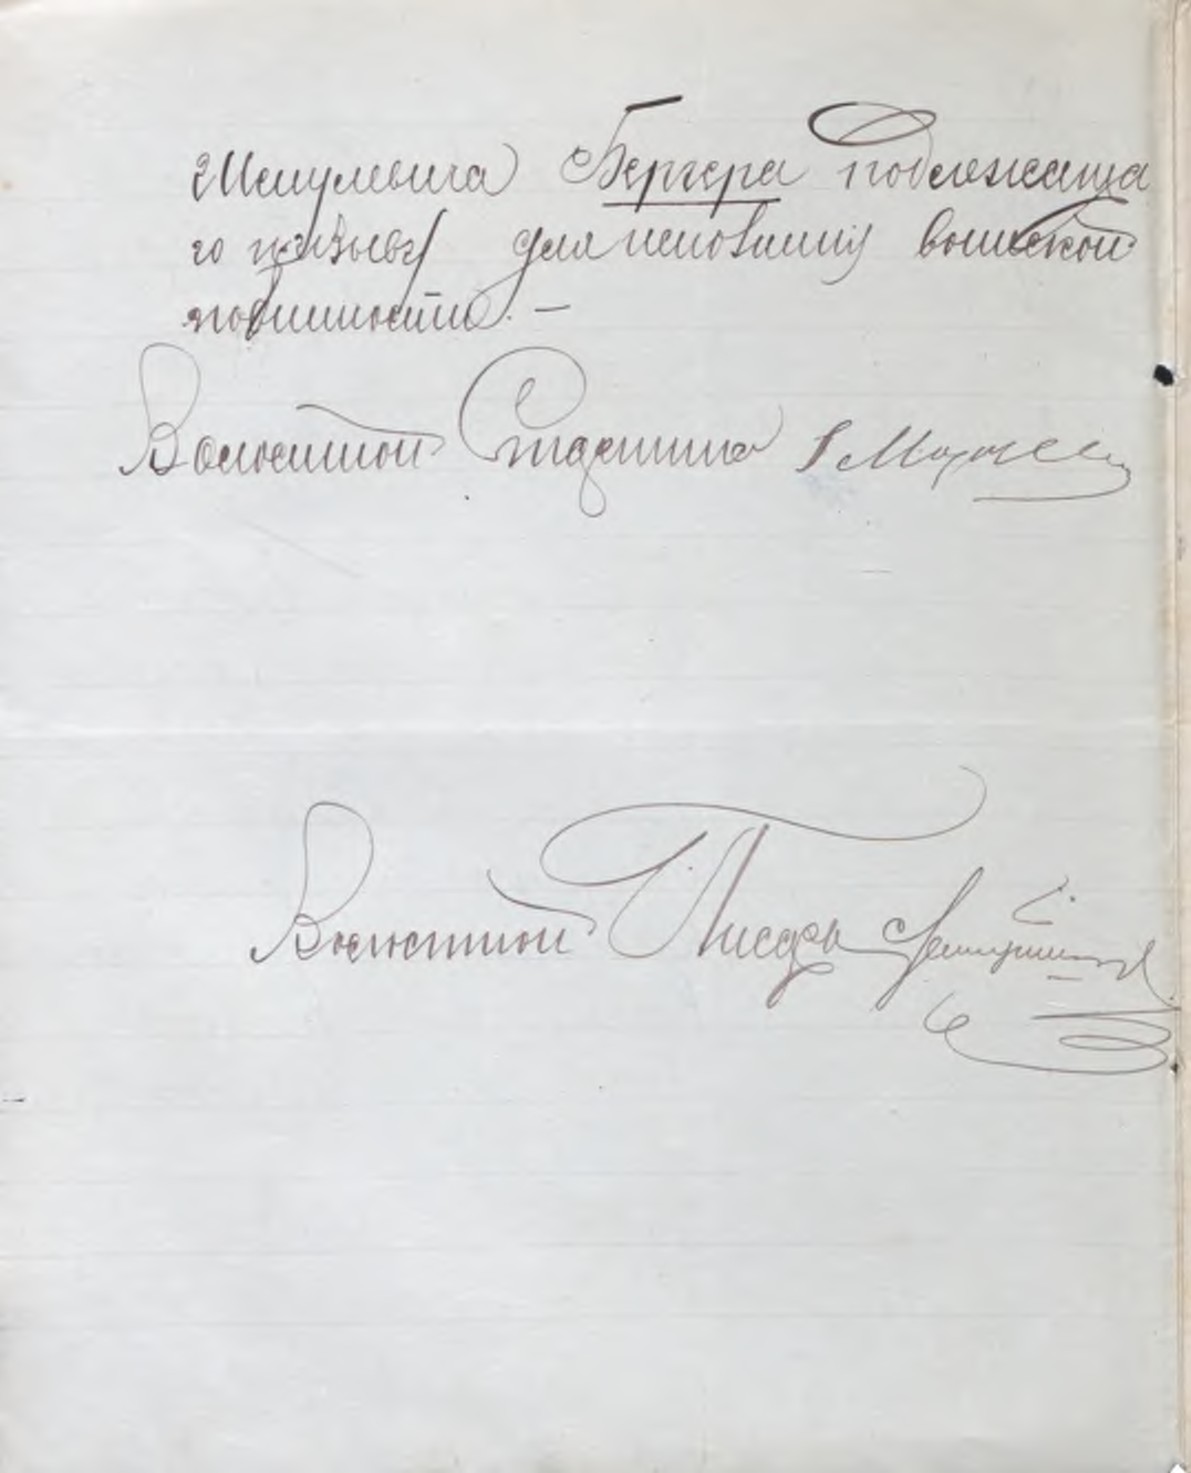 Шмулевича Бергера подлежаща
го призыву для исповинную воинской
повинности. —
Волостной Старшина
Волостной Писарь